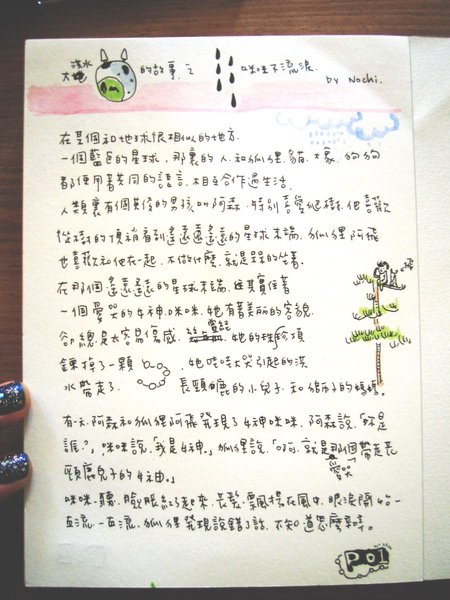 淡水 的故事之 咪咪不流淚.
by Nochi.
在某個和地球很相似的地方.
一個藍色的星球,那裏的人.和狐狸.貓.大象.狗狗
都使用著共同的語言,相互合作過生活.
人類裏有個英俊的男孩叫阿森,特別喜愛爬樹,他喜歡
從樹的頂端看到遙遠遙遠的星球末端,狐狸阿飛
也喜歡和他在一起,不做什麼,就是呆的坐著.
在那個遙遠遙遠的星球末端,確實住著
一個愛哭的女神.咪咪.她有著美麗的容貌
卻總是太容易傷感. 她的珍項
鍊掉了一顆 ,她大哭引起的洪
水帶走了. 長頸鹿的小兒子.和獅子的媽媽。
有一天,阿森和狐狸阿飛發現了女神咪咪,阿森說「妳是
誰?」,咪咪說「我是女神」狐狸說「呵,就是那個帶走長
愛哭
頸鹿兒子的女神。」
咪咪一聽,臉脹紅了起來,長髮飄揚在風中,眼淚開始一
直流,一直流,狐狸發現說錯了話,不知道怎麼辦。
P01